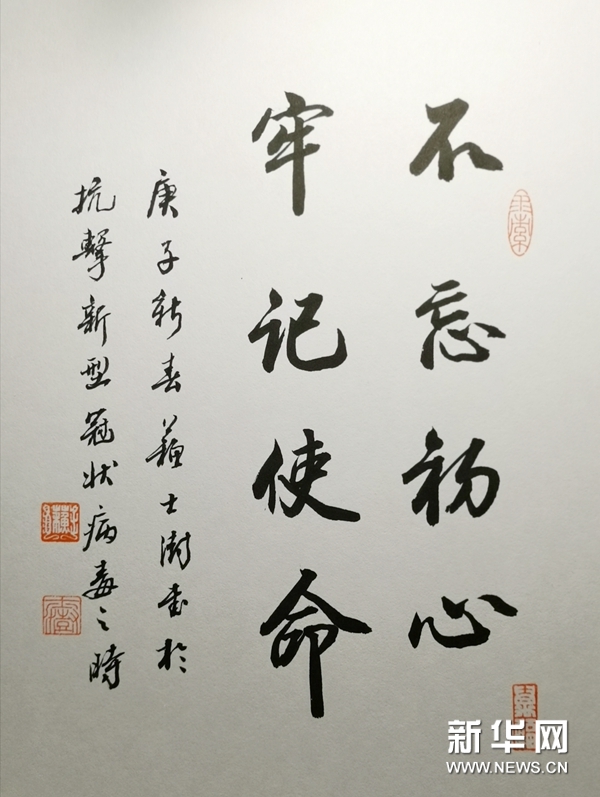 不忘初心
牢记使命
庚子新春蘓士澍書於
抗擊新型冠状病毒之時
新华网
WWW.NEWS.CN